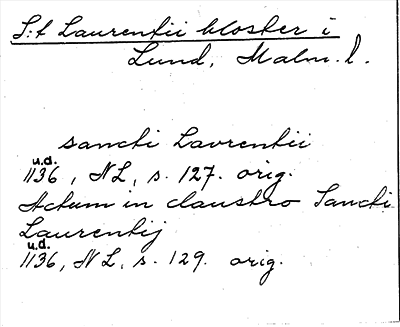 S:t Laurentii kloster i
Lund, Malm. l.
sancti Lavrentii
u.d.
1136, NL, s. 127. orig.
Actum in claustro Sancti
Laurentij
u.d.
1136, NL, s. 129. orig.